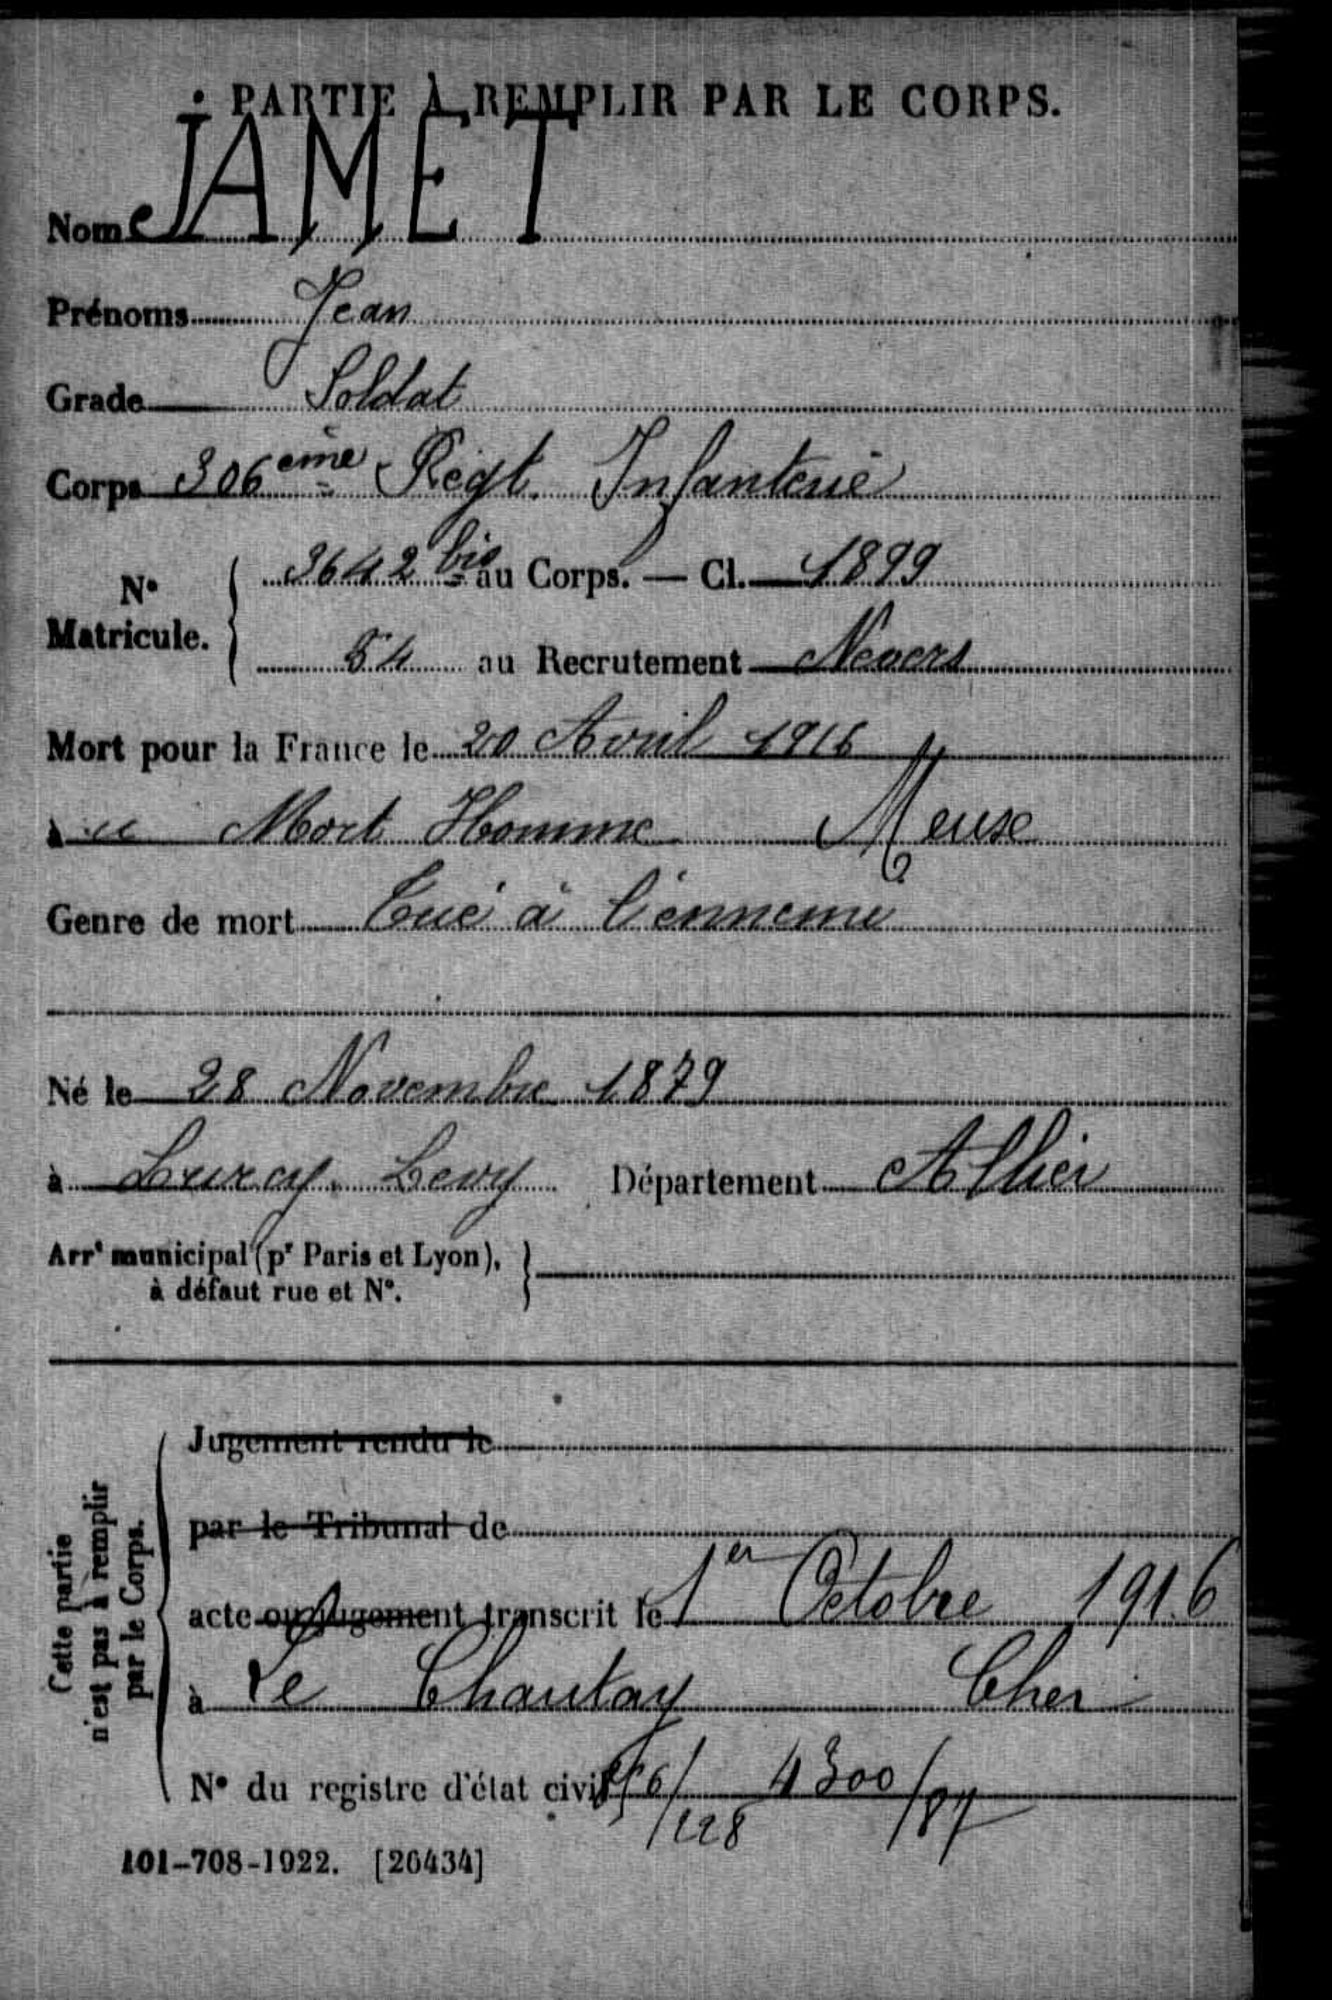 PARTIE À REMPLIR PAR LE CORPS.
Nom JAMET
Prénoms Jean
Grade Soldat
Corps 306ème Régt. Infanterie
N° Matricule. 3642 bis au Corps. — Cl. 1899
54 au Recrutement Nevers
Mort pour la France le 20 Avril 1916
à Mort Homme Meuse
Genre de mort Tué à l'ennemi
Né le 28 Novembre 1879
à Lurcy Levy Département Allier
Arrt municipal (pr Paris et Lyon), à défaut rue et N°.
Jugement rendu le
par le Tribunal de
acte ou jugement transcrit le 1er Octobre 1916
à Le Chautay Cher
N° du registre d'état civil 4300/87
101-708-1922. [26434]
Cette partie n'est pas à remplir par le Corps.